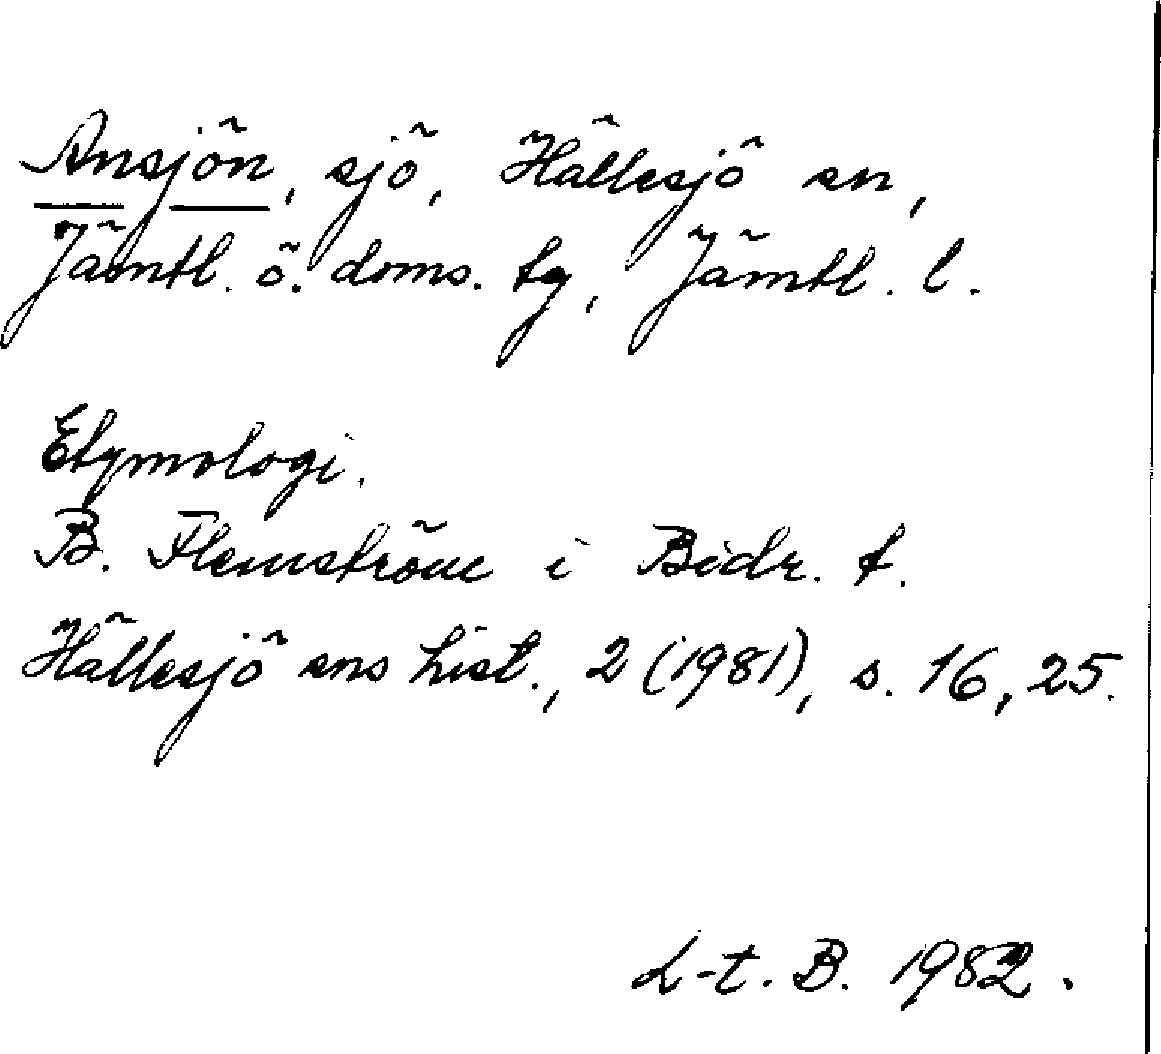 Ansjön, sjö, Hällesjö sn,
Jämtl. ö. doms. tg, Jämtl. l.
Etymologi.
B. Flemström i Bidr. t.
Hällesjö sns hist., 2 (1981), s. 16, 25.
L-t. B. 1982.